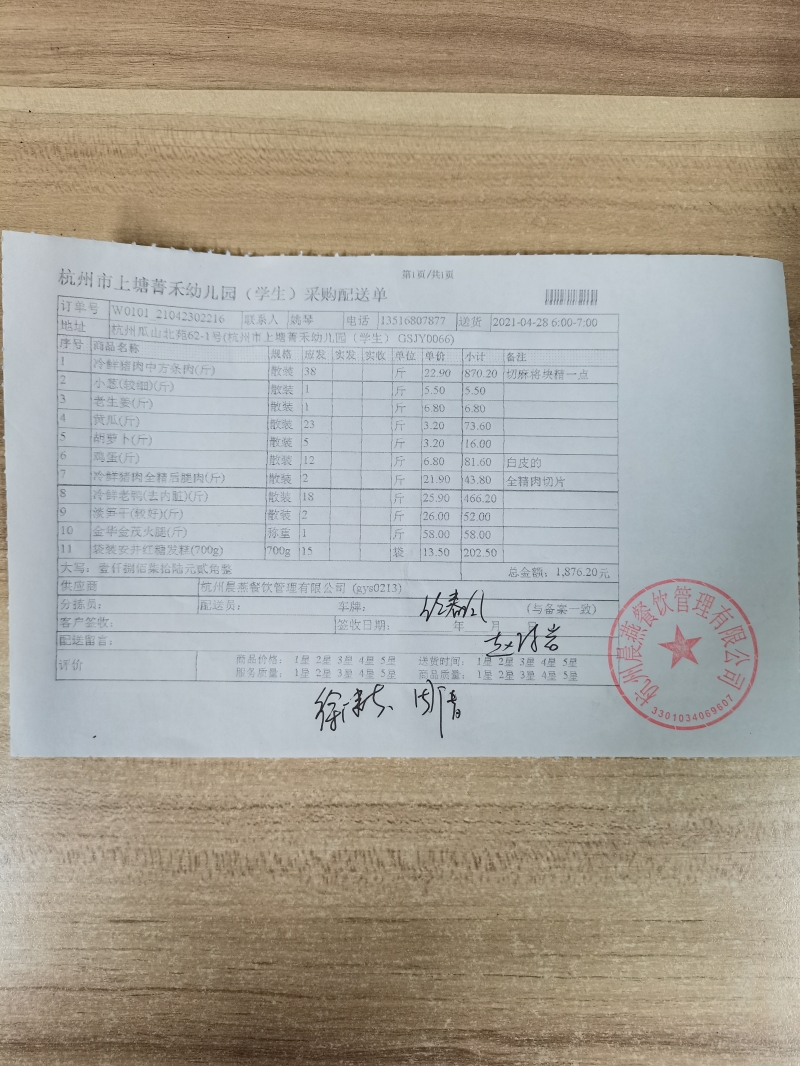 第1页/共1页
杭州市上塘菁禾幼儿园（学生）采购配送单
订单号 W0101_21042302216 联系人 姚琴 电话 13516807877 送货 2021-04-28 6:00-7:00
地址 杭州瓜山北苑62-1号(杭州市上塘菁禾幼儿园（学生） GSJY0066)
序号 商品名称 规格 应发 实发 实收 单位 单价 小计 备注
1 冷鲜猪肉中方条肉(斤) 散装 38 斤 22.90 870.20 切麻将块精一点
2 小葱(较细)(斤) 散装 1 斤 5.50 5.50
3 老生姜(斤) 散装 1 斤 6.80 6.80
4 黄瓜(斤) 散装 23 斤 3.20 73.60
5 胡萝卜(斤) 散装 5 斤 3.20 16.00
6 鸡蛋(斤) 散装 12 斤 6.80 81.60 白皮的
7 冷鲜猪肉全精后腿肉(斤) 散装 2 斤 21.90 43.80 全精肉切片
8 冷鲜老鸭(去内脏)(斤) 散装 18 斤 25.90 466.20
9 淡笋干(较好)(斤) 散装 2 斤 26.00 52.00
10 金毕金茂火腿(斤) 称重 1 斤 58.00 58.00
11 袋装安井红糖发糕(700g) 700g 15 袋 13.50 202.50
大写：壹仟捌佰柒拾陆元贰角整 总金额：1,876.20元
供应商 杭州晨燕餐饮管理有限公司 (gys0213)
分拣员： 配送员： 车牌： （与备案一致）
客户签收： 签收日期： 年 月 日
配送留言：
评价 商品价格： 1星 2星 3星 4星 5星 送货时间： 1星 2星 3星 4星 5星
服务质量： 1星 2星 3星 4星 5星 商品质量： 1星 2星 3星 4星 5星
杭州晨燕餐饮管理有限公司
3301034069607